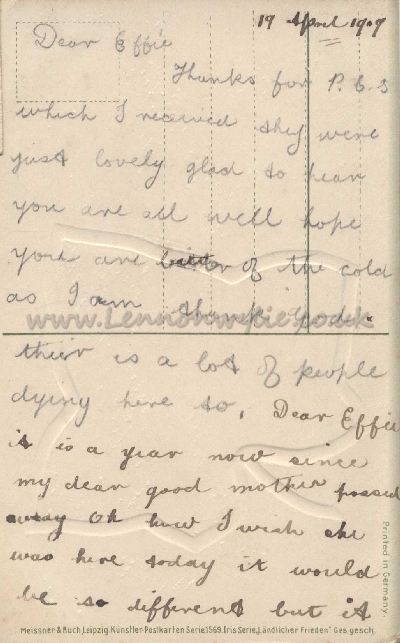 19 April 1907
Dear Effie
Thanks for P. C. S
which I received they were
just lovely glad to hear
you are all well hope
your are better of the cold
as I am thank God.
their is a lot of people
dying here to. Dear Effie
it is a year now since
my dear good mother passed
away Oh how I wish she
was here today it would
be so different but it
Printed in Germany.
Meissner & Buch, Leipzig. Künstler-Postkarten Serie 1569. Iris Serie, „Ländlicher Frieden" Ges. gesch.